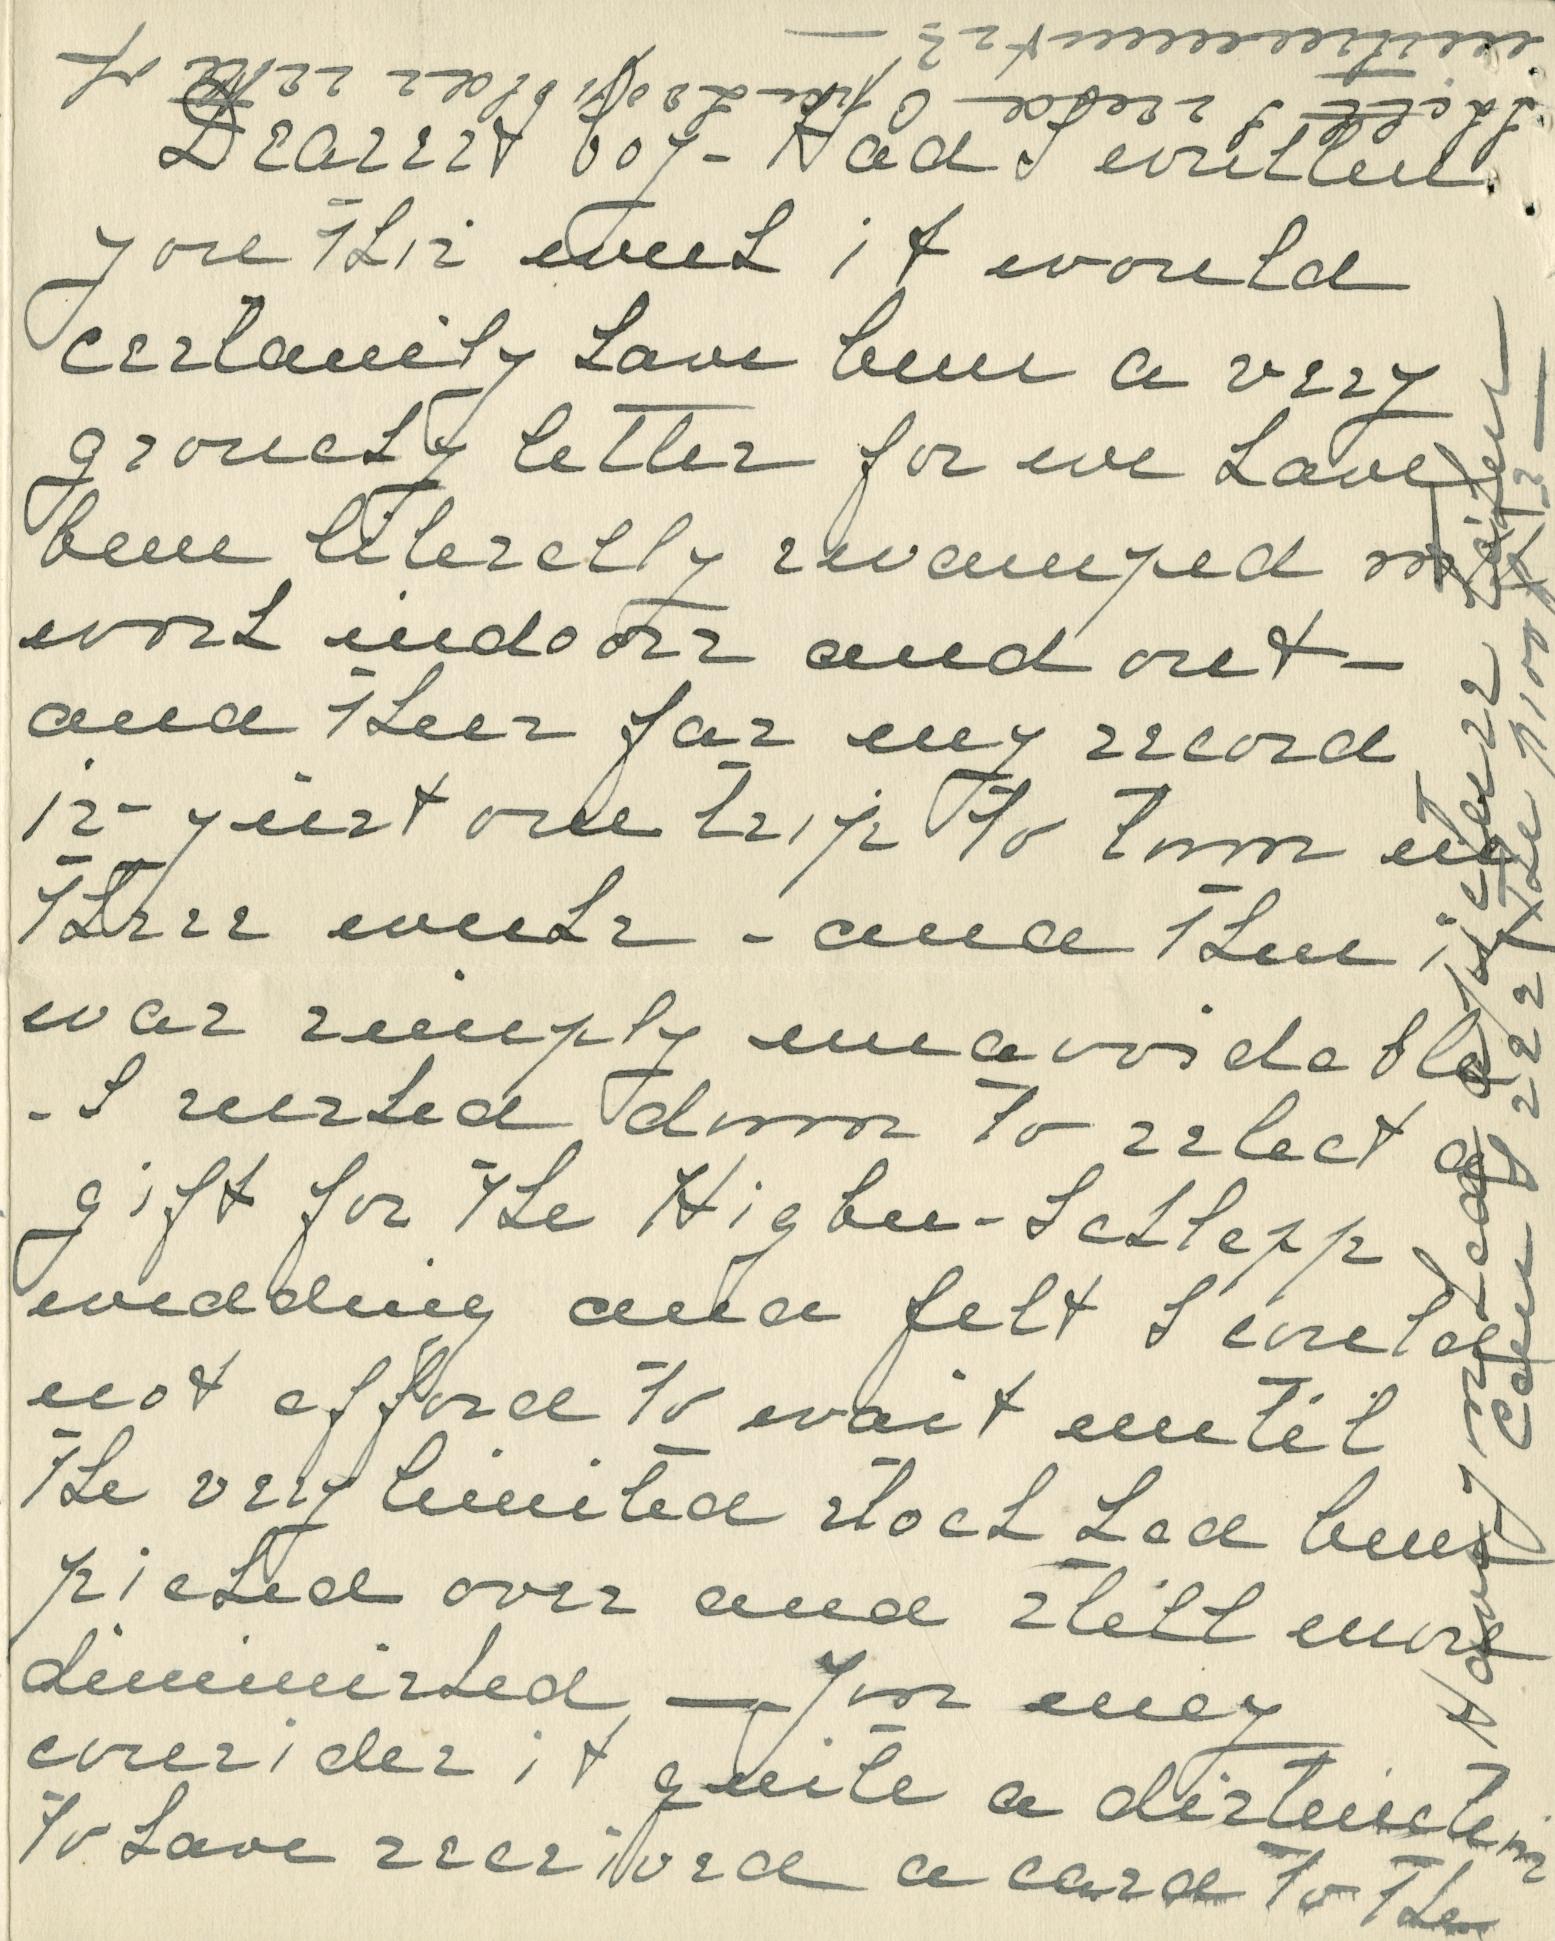 Dearest boy - Had I written
you this week it would
certainly have been a very
grouchy letter for we have
been literally swamped with
work indoors and out -
and thus far my record
is - just one trip to town in
three weeks - and then it
was simply unavoidable
- I rushed down to select a
gift for the Higbee - Schlepp
wedding and felt I could
not afford to wait until
the very limited stock had been
picked over and still more
diminished - You may
consider it quite a distinction
to have received a card to the
Have you had a
Can
the $100